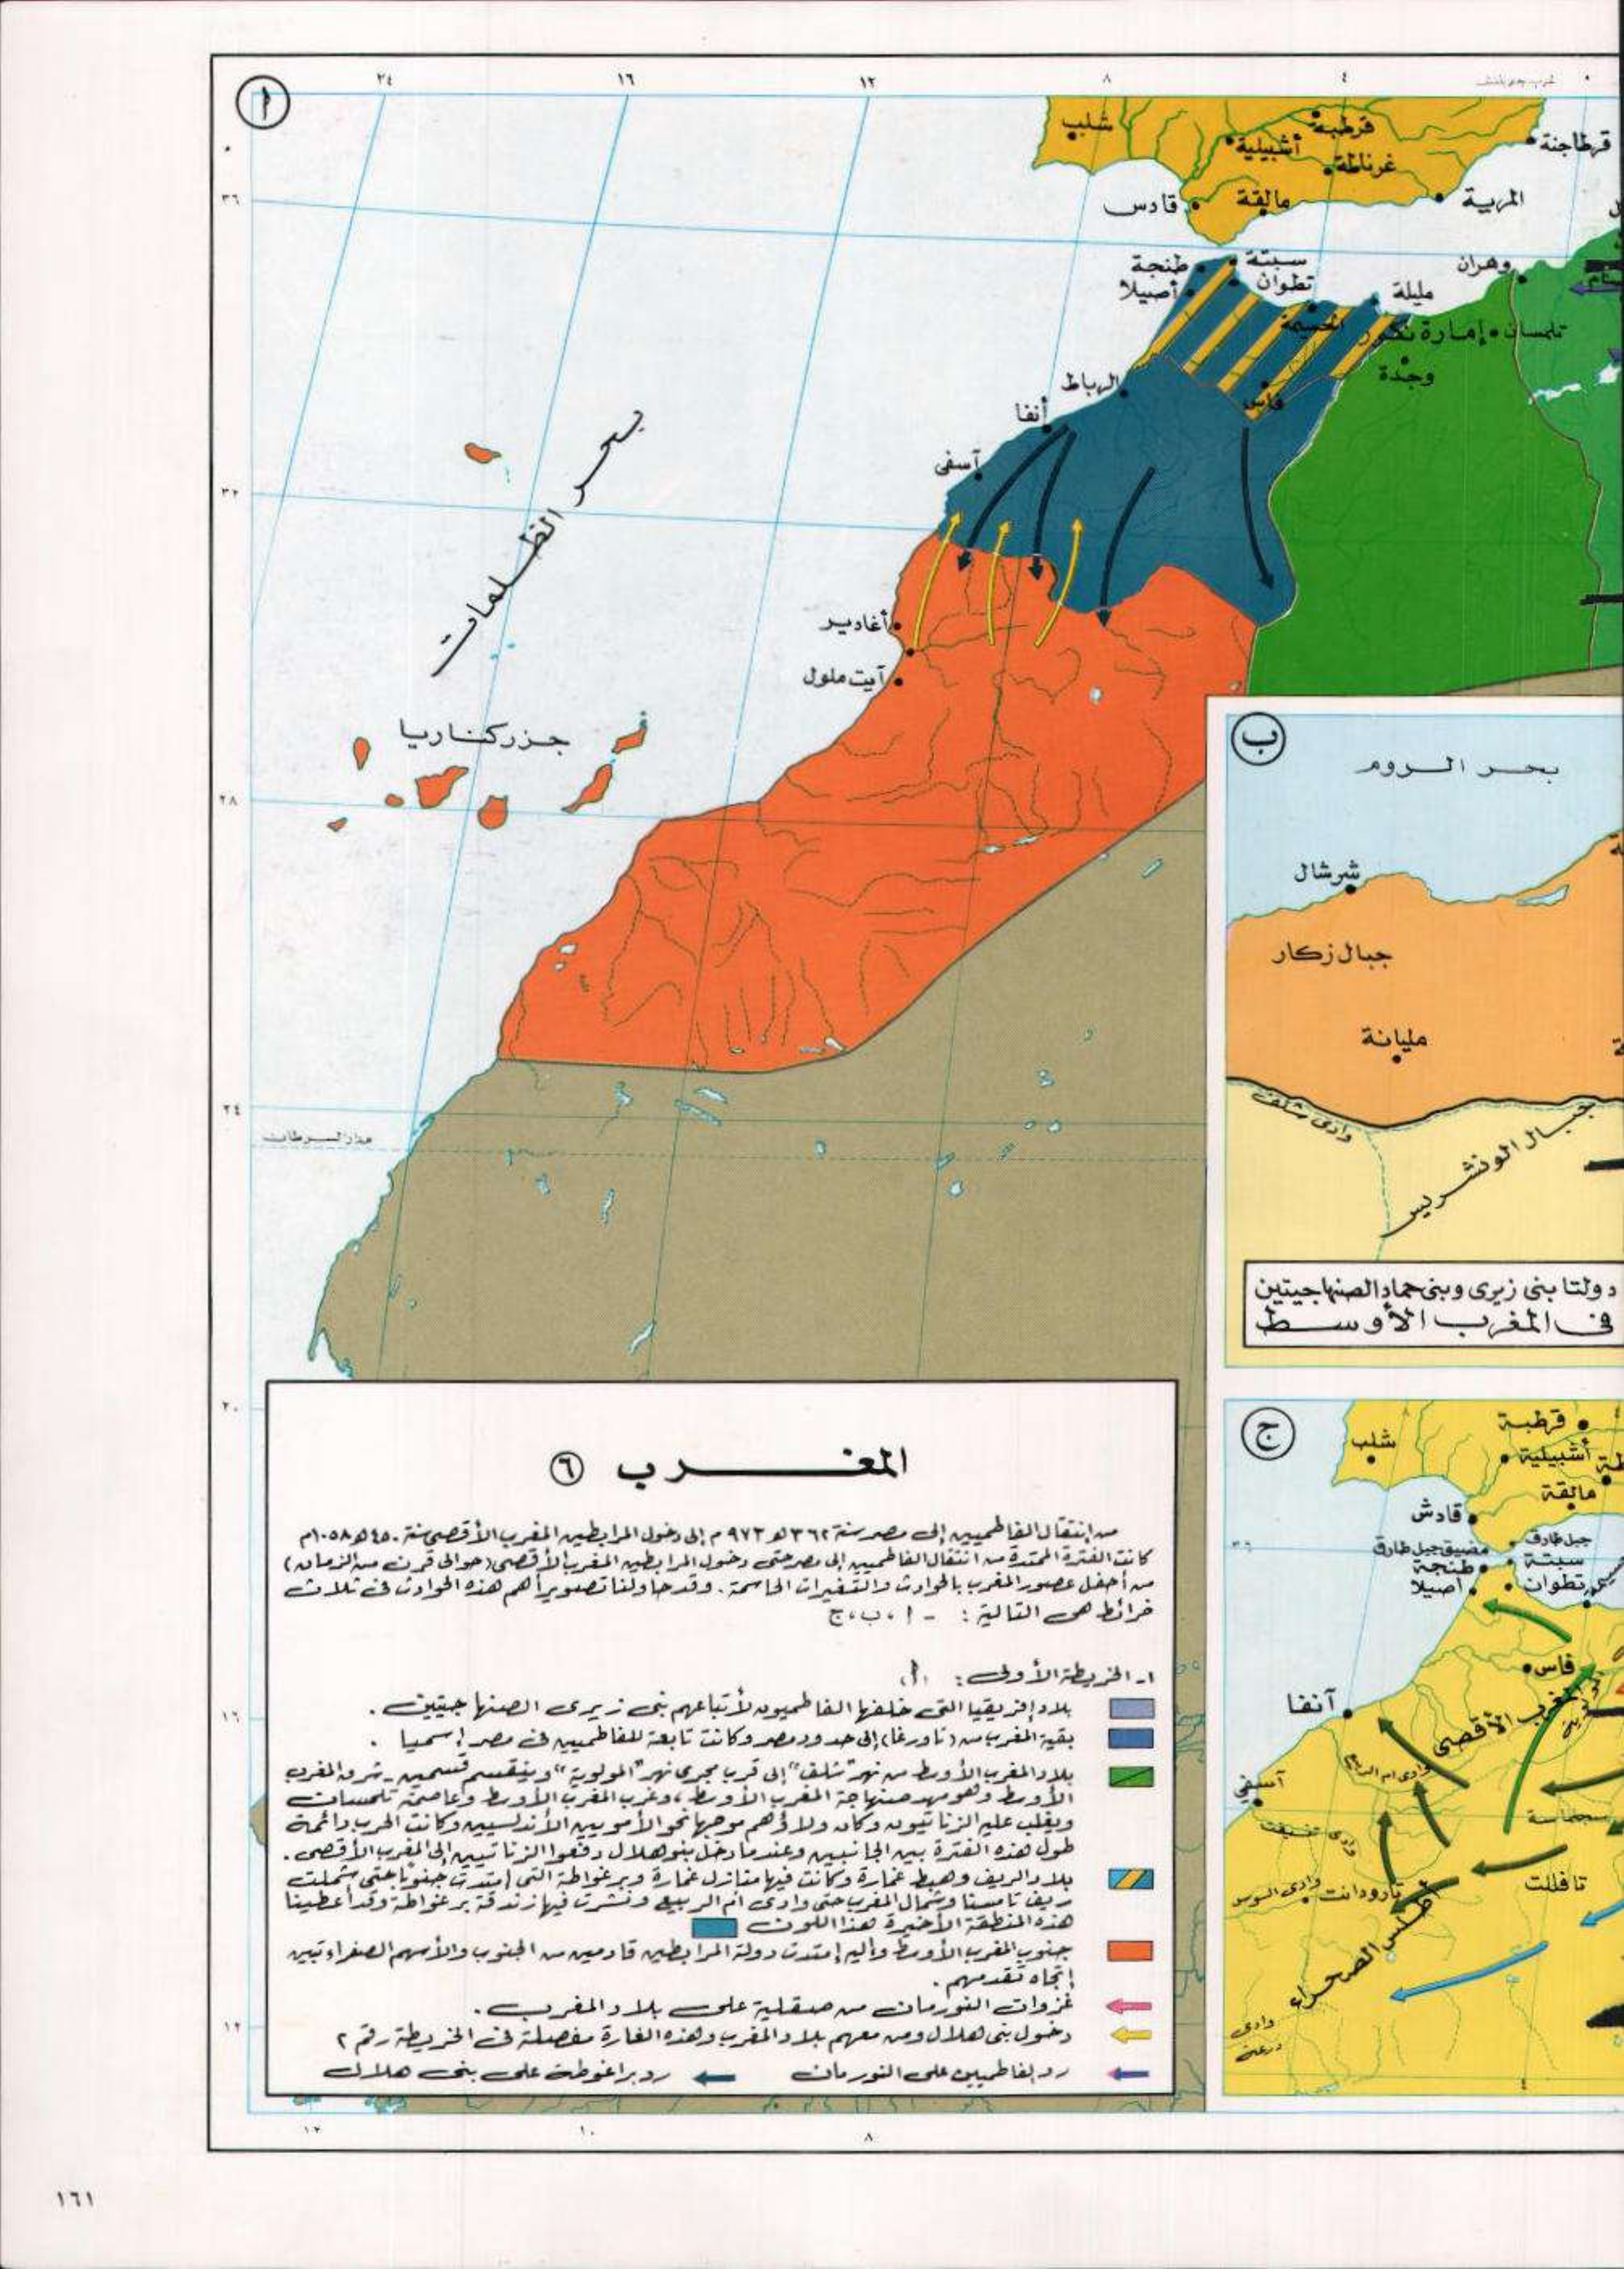 أ
٢٤
١٦
١٢
٨
٤
٠
٣٦
٣٢
٢٨
٢٤
٢٠
١٦
١٢
شلب
قرطبة
أشبيلية
غرناطة
قرطاجنة
قادس
مالقة
المرية
طنجة
سبتة
أصيلا
تطوان
مليلة
وهران
الحسيمة
إمارة نكور
تلمسان
وجدة
الرباط
فاس
أنفا
آسفى
بحر الظلمات
أغادير
آيت ملول
جزر كناريا
مدار السرطان
ب
بحر الروم
شرشال
جبال زكار
مليانة
وادى شلف
جبال الونشريس
دولتا بنى زيرى وبنى حماد الصنهاجيتين
فى المغرب الأوسط
ج
شلب
قرطبة
أشبيلية
مالقة
قادش
جبل طارق
مضيق جبل طارق
سبتة
طنجة
تطوان
اصيلا
فاس
آنفا
المغرب الأقصى
وادى ام الربيع
آسفي
سجلماسة
وادى تنسيفت
تافللت
تارودانت
وادى السوس
أطلس الصحراء
وادى
درعة
المغرب ٦
من إنتقال الفاطميين إلى مصر سنة ٣٦٢ هـ ٩٧٣ م إلى دخول المرابطين المغرب الأقصى سنة ٤٥٠ هـ ١٠٥٨م
كانت الفترة الممتدة من انتقال الفاطميين إلى مصر حتى دخول المرابطين المغرب الأقصى (حوالى قرن من الزمان)
من أحفل عصور المغرب بالحوادث والتغيرات الحاسمة . وقد حاولنا تصوير أهم هذه الحوادث فى ثلاث
خرائط هى التالية : - ا ، ب ، ج
١- الخريطة الأولى : (أ)
بلاد إفريقيا التى خلفها الفاطميون لأتباعهم بنى زيرى الصنهاجيين .
بقية المغرب من (تاورغا) إلى حدود مصر وكانت تابعة للفاطميين فى مصر إسميا .
بلاد المغرب الأوسط من نهر "شلف" إلى قرب مجرى نهر "المولوية" وينقسم قسمين - شرق المغرب
الأوسط وهو مهد صنهاجة المغرب الأوسط ، وغرب المغرب الأوسط وعاصمة تلمسان
ويغلب عليه الزناتيون وكان ولاؤهم موجها نحو الأمويين الأندلسيين وكانت الحرب دائمة
طول هذه الفترة بين الجانبين وعندما دخل بنو هلال دفعوا الزناتيين إلى المغرب الأقصى .
بلاد الريف وهبط غمارة وكانت فيها منازل غمارة وبرغواطة التى امتدت جنوبا حتى شملت
ريف تامسنا وشمال المغرب حتى وادى ام الربيع ونشرت فيها زندقة برغواطة وقد أعطينا
هذه المنطقة الأخيرة هذا اللون
جنوب المغرب الأوسط وإليه إمتدت دولة المرابطين قادمين من الجنوب والأسهم الصفراء تبين
إتجاه تقدمهم .
غزوات النورمان من صقلية على بلاد المغرب .
دخول بنى هلال ومن معهم بلاد المغرب وهذه الغارة مفصلة فى الخريطة رقم ٢
رد الفاطميين على النورمان
رد براغوطة على بنى هلال
١٢
١٠
٨
١٦١